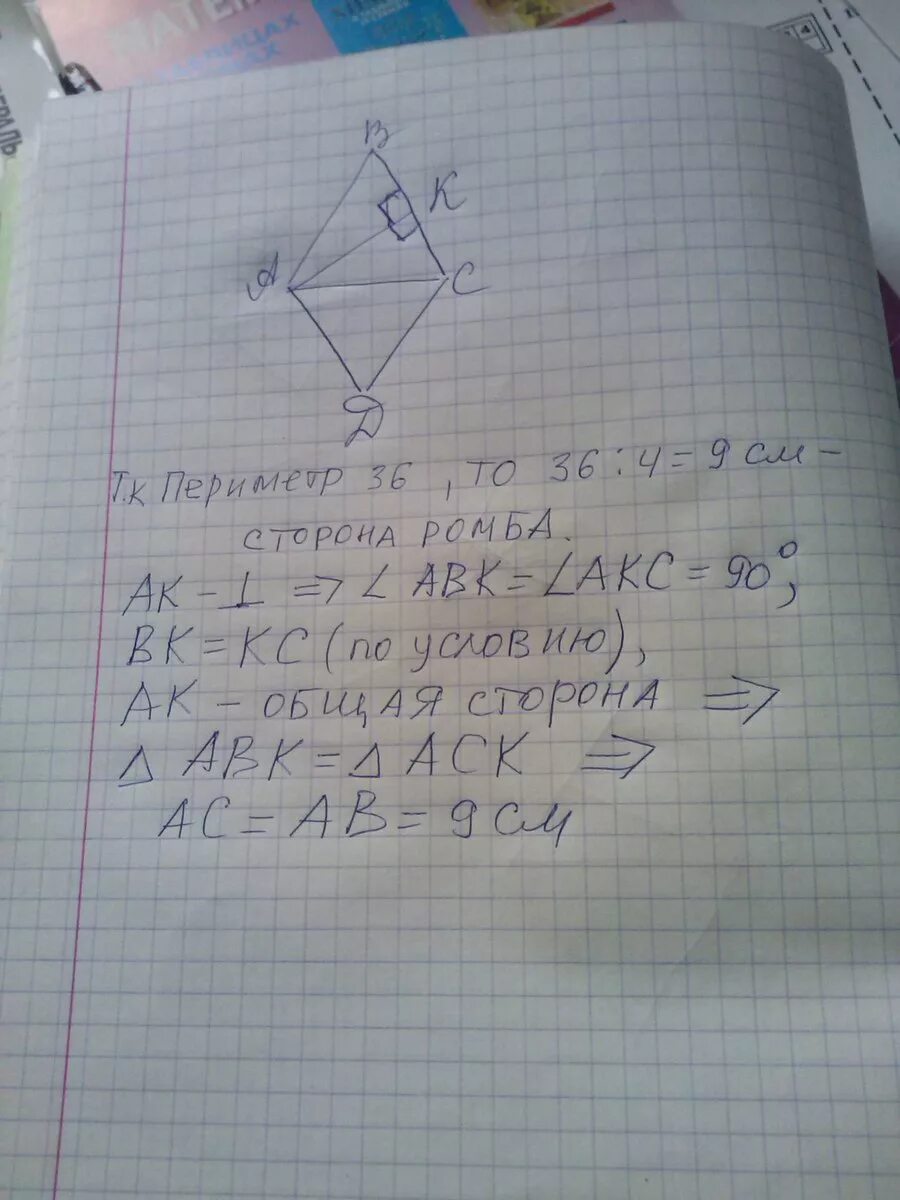 МАТЕМ
ТАБЛИЦАХ
B
K
A
C
Д
Т.к Периметр 36 , то 36 : 4 = 9 см –
сторона ромба.
AK – ⊥ => ∠ ABK = ∠AKC = 90°,
BK = KC (по условию),
AK – общая сторона =>
△ ABK = △ ACK =>
AC = AB = 9 см